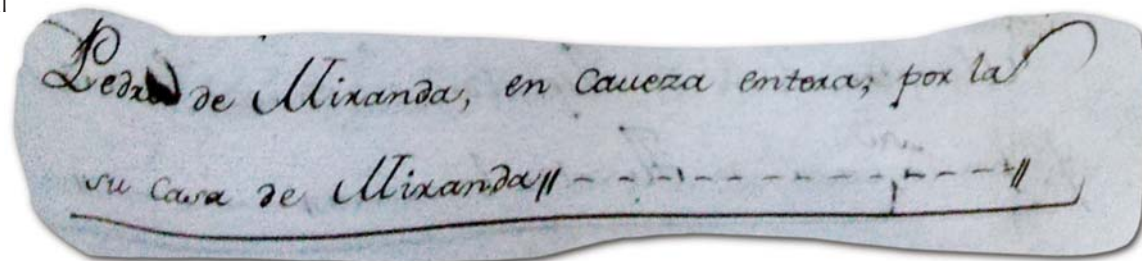 Pedro de Miranda, en Caueza entera; por la
su Casa de Miranda// - - - - - - - - - - - - - //